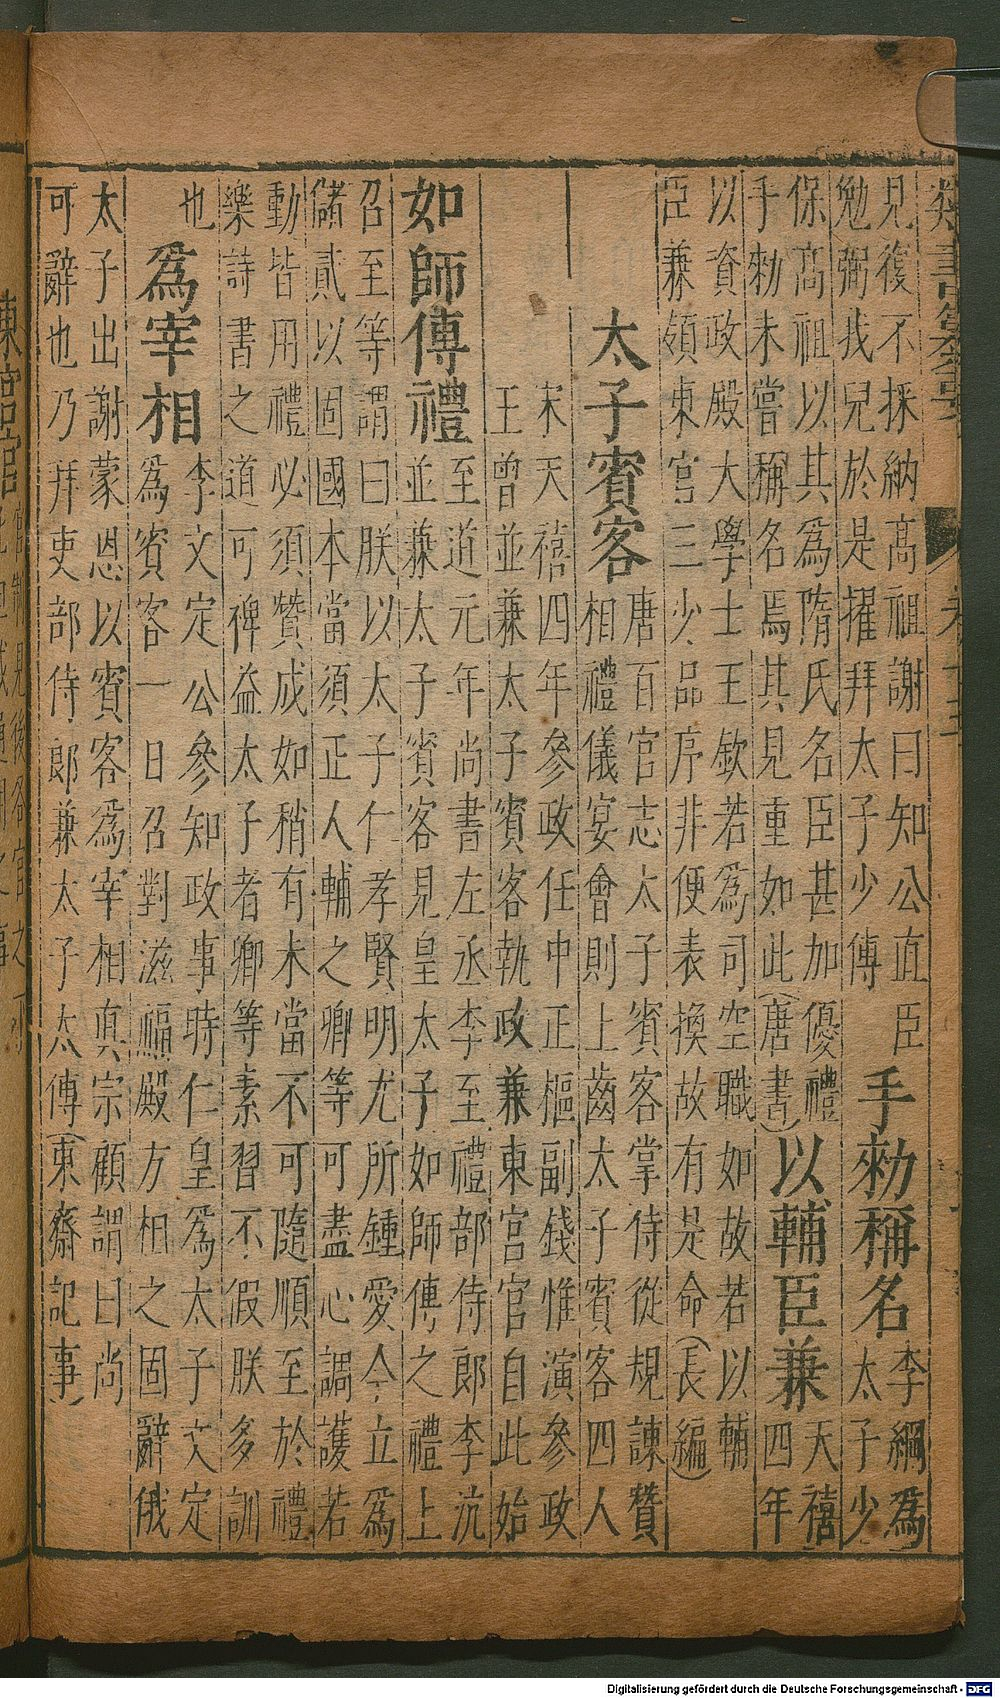 見復不採納高祖謝曰知公直臣
勉弼我兒於是擢拜太子少傅
手勑稱名
李綱爲
太子少
保高祖以其爲隋氏名臣甚加優禮
手勑未嘗稱名焉其見重如此(唐書)
以輔臣兼
天禧
四年
以資政殿大學士王欽若爲司空職如故若以輔
臣兼領東宮三少品序非便表換故有是命(長編)
太子賓客
唐百官志太子賓客掌侍從規諫贊
相禮儀宴會則上齒太子賓客四人
宋天禧四年參政任中正樞副錢惟演參政
王曾並兼太子賓客執政兼東宮官自此始
如師傅禮
至道元年尚書左丞李至禮部侍郎李沆
並兼太子賓客見皇太子如師傅之禮上
召至等謂曰朕以太子仁孝賢明尤所鍾愛今立爲
儲貳以固國本當須正人輔之卿等可盡心調護若
動皆用禮必須贊成如稍有未當不可隨順至於禮
樂詩書之道可裨益太子者卿等素習不假朕多訓
也
爲宰相
李文定公參知政事時仁皇爲太子文定
爲賓客一日召對滋福殿方相之固辭俄
太子出謝蒙恩以賓客爲宰相真宗顧謂曰尚
可辭也乃拜吏部侍郎兼太子太傅(東齋記事)
Digitalisierung gefördert durch die Deutsche Forschungsgemeinschaft - DFG